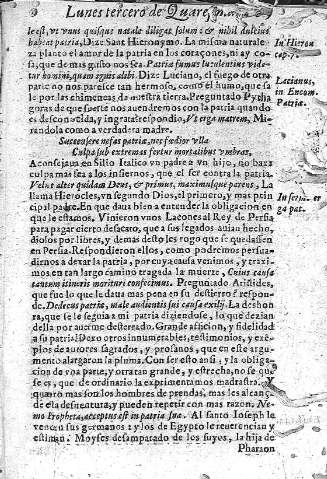 Lunes tercero de Quare
le est, vt vnus quisque natale diligat solum: & nihil dulcius
habeat patria, Dize Sant Hieronymo. La misma naturale
za planto el amor de la patria en los coraçones, ni ay co-
sa, que de mas gusto nos sea. Patria fumus luculentius vide
tur homini, quam ignis alibi. Dize Luciano, el fuego de otra
parte no nos parece tan hermoso, como el humo, que sa
le por las chimeneas de nuestra tierra. Preguntado Pythа
goras de que suerte nos auendremos con la patria quando
es desconocida, y ingrata: respondio, Vt erga matrem, Mi-
randola como a verdadera madre.
Succensere nefas patriæ, nec fœdior vlla
Culpa sub extremas fertur mortalibus vmbras.
Aconsejaua en Silio Italico vn padre a vn hijo, no baxa
culpa mas fea a los infiernos, que el ser contra la patria.
Velut alter quidam Deus, & primus, maximusque parens, La
llama Hierocles, vn segundo Dios, al primero, y mas prin
cipal padre. En que da a bien a entender la obligacion en
que le estamos. Vinieron vnos Lacones al Rey de Persia
para pagar cierto desacato, que a sus legados auian hecho,
diolos por libres, y demas desto les rogo que se quedassen
en Persia. Respondieron ellos, como podremos persua-
dirnos a dexar la patria, por cuya causa venimos, y traxi-
mos en tan largo camino tragada la muerte, Cuius causa
tantum itineris morituri confecimus. Preguntado Aristides,
que fue lo que le daua mas pena en su destierro? respon-
de. Dedecus patriæ, male audientis ob causa exilij. La desho
ra, que se le seguia a mi patria diziendose, lo que dezian
della por auerme desterrado. Grande aficion, y fidelidad
a su patria. Dexo otros innumerables, testimonios, y exē-
plos de autores sagrados, y profanos, que en este argu-
mento alargaron la pluma. Con ser esto ansi, y la obliga-
cion de vna parte, y otra tan grande, y estrecha, no se que
se es, que de ordinario la exprimentamos madrastra. Y
quanto mas son los hombres de prendas, mas les alcança
de esta desnatura, y pueden repetir con mas razon. Ne-
mo Propheta acceptus est in patria sua. Al santo Ioseph le
vencen sus germanos: y los de Egypto le reuerencian y
estiman. Moyses desamparado de los suyos, la hija de
Pharaon
In Hieron
cap. 7.
Lucianus,
in Encom.
Patriæ.
ga pat.